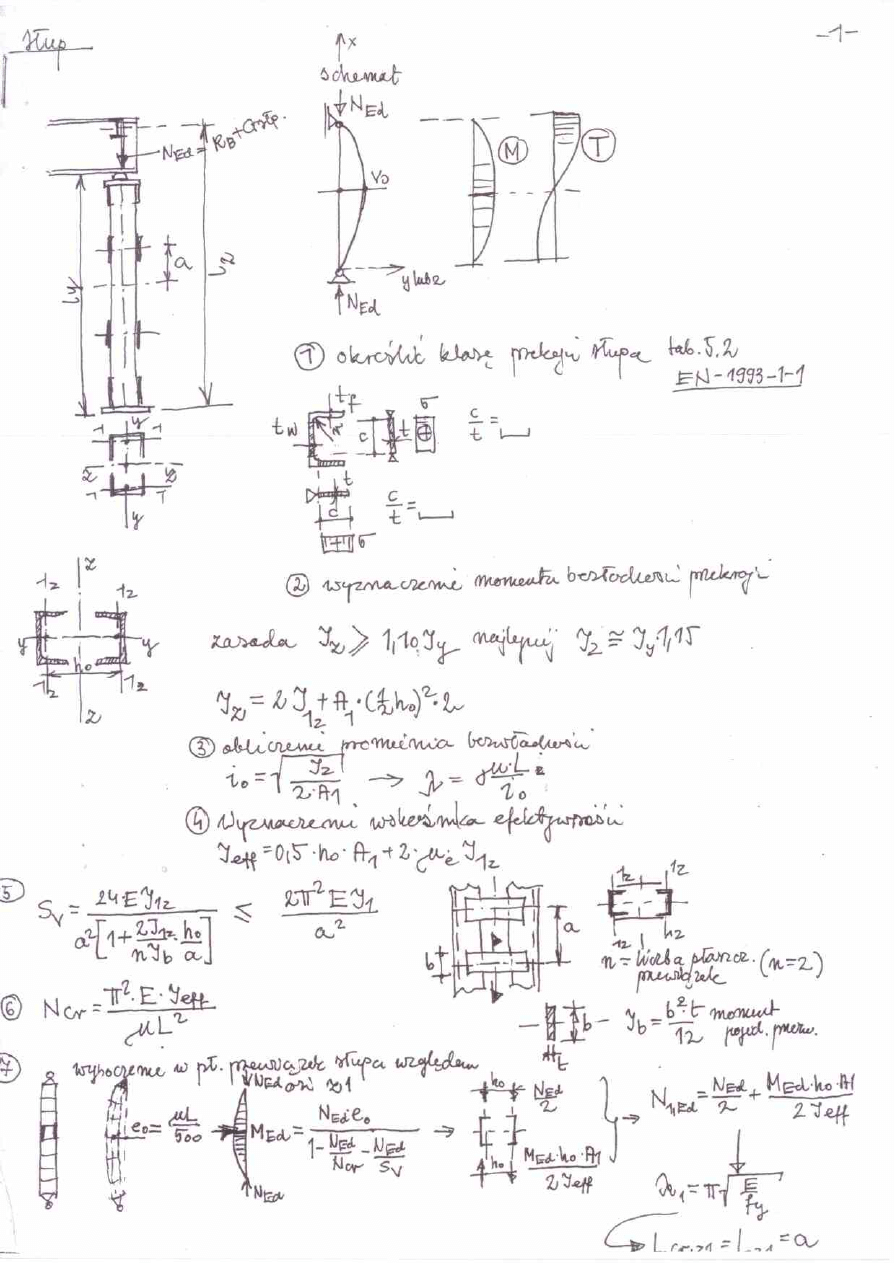 Słup
-1-
x
schemat
NEd
NEd = RB + Gsłp.
M
T
v0
a
Ly
Lz
y lub z
NEd
① określić klasę przekroju słupa tab. 5.2
EN-1993-1-1
tf
tw
r
c
t
σ
c/t =
y
1 1
z z
1 1
y
t
c
c/t =
σ
② wyznaczenie momentu bezwładności przekroju
z
1z 1z
y y
h0
1z 1z
z
zasada Jz ⩾ 1,10 Jy najlepiej Jz ≅ Jy·1,15
Jz = 2 J1z + A1·(½h0)²·2
③ obliczenie promienia bezwładności
i0 = √(Jz / 2·A1) → λ = μ·L / i0
④ Wyznaczenie wskaźnika efektywności
Jeff = 0,5·h0·A1 + 2·μe J1z
⑤ Sv = 24·E J1z / a²[1 + 2J1z/nJb · h0/a] ≤ 2π² E J1 / a²
a
b
1z 1z
1z 1z
n = liczba płaszcz. (n=2)
przewiązek
⑥ Ncr = π²·E·Jeff / μL²
b – Jb = b³·t / 12 moment
pojed. przew.
t
⑦ wyboczenie w pł. przewiązek słupa względem
osi z1
NEd
e0 = μL/500
MEd = NEd·e0 / 1 - NEd/Ncr - NEd/Sv →
NEd
h0 NEd/2
h0 MEd·h0·A1 / 2Jeff
→ N1,Ed = NEd/2 + MEd·h0·A1 / 2Jeff
λ1 = π√(E/fy)
Lcr,z1 = Lz1 = a